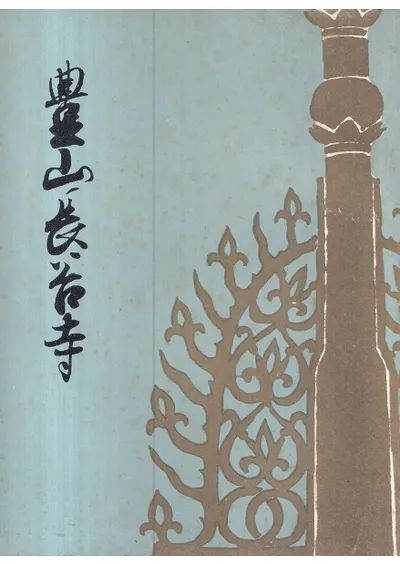 豊山長谷寺